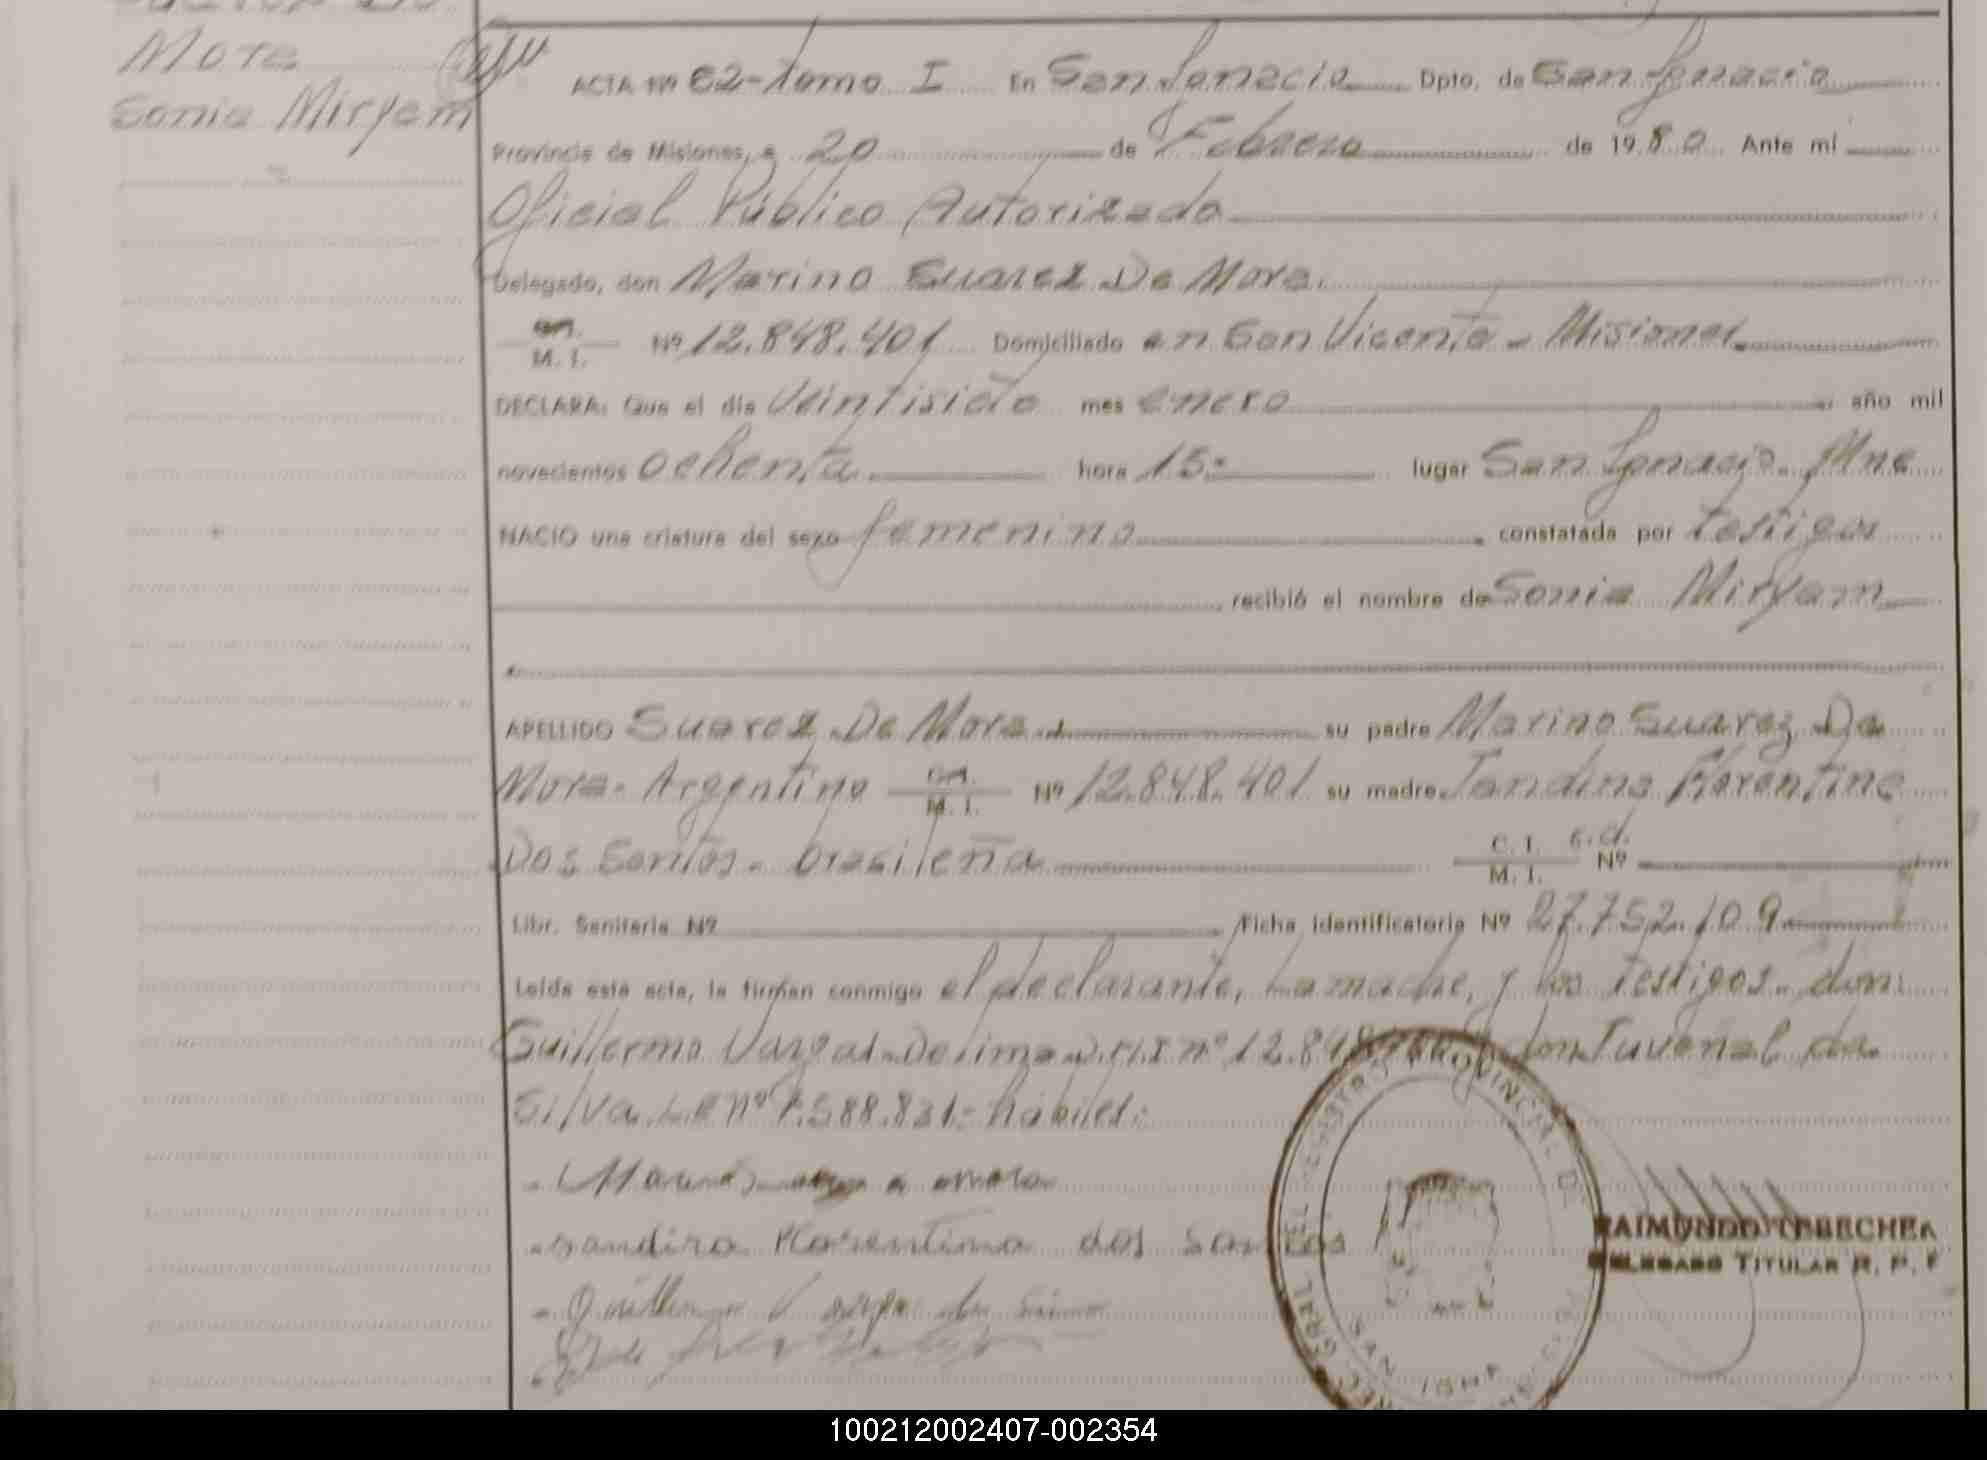 Mora
Sonia Miryam
ACTA Nº 62-Tomo I En San Ignacio Dpto. de San Ignacio
Provincia de Misiones, a 20 de Febrero de 1980 Ante mí
Oficial Público Autorizado
Delegado, don Marino Suarez De Mora.
M. I. Nº 12.848.401 Domiciliado en San Vicente - Misiones
DECLARA: Que el día Veintisiete mes enero año mil
novecientos ochenta hora 15:- lugar San Ignacio. Mne
NACIO una criatura del sexo femenino constatada por testigos
recibió el nombre de Sonia Miryam
APELLIDO Suarez De Mora su padre Marino Suarez De
Mora. Argentino M. I. Nº 12.848.401 su madre Jandira Florentino
Dos Santos. brasileña C. I. M. I. s.d. Nº
Libr. Sanitaria Nº Ficha identificatoria Nº 27.752.109
Leída esta acta, la firman conmigo el declarante, La madre, y los testigos. don
Guillermo Vargas De Lima D.N.I nº 12.848 don Juvenal da
Silva. L.E nº 7.588.831.- hábiles:
Jandira Florentino dos Santos
RAIMUNDO TEBECHEA
DELEGADO TITULAR R. P. P
100212002407-002354